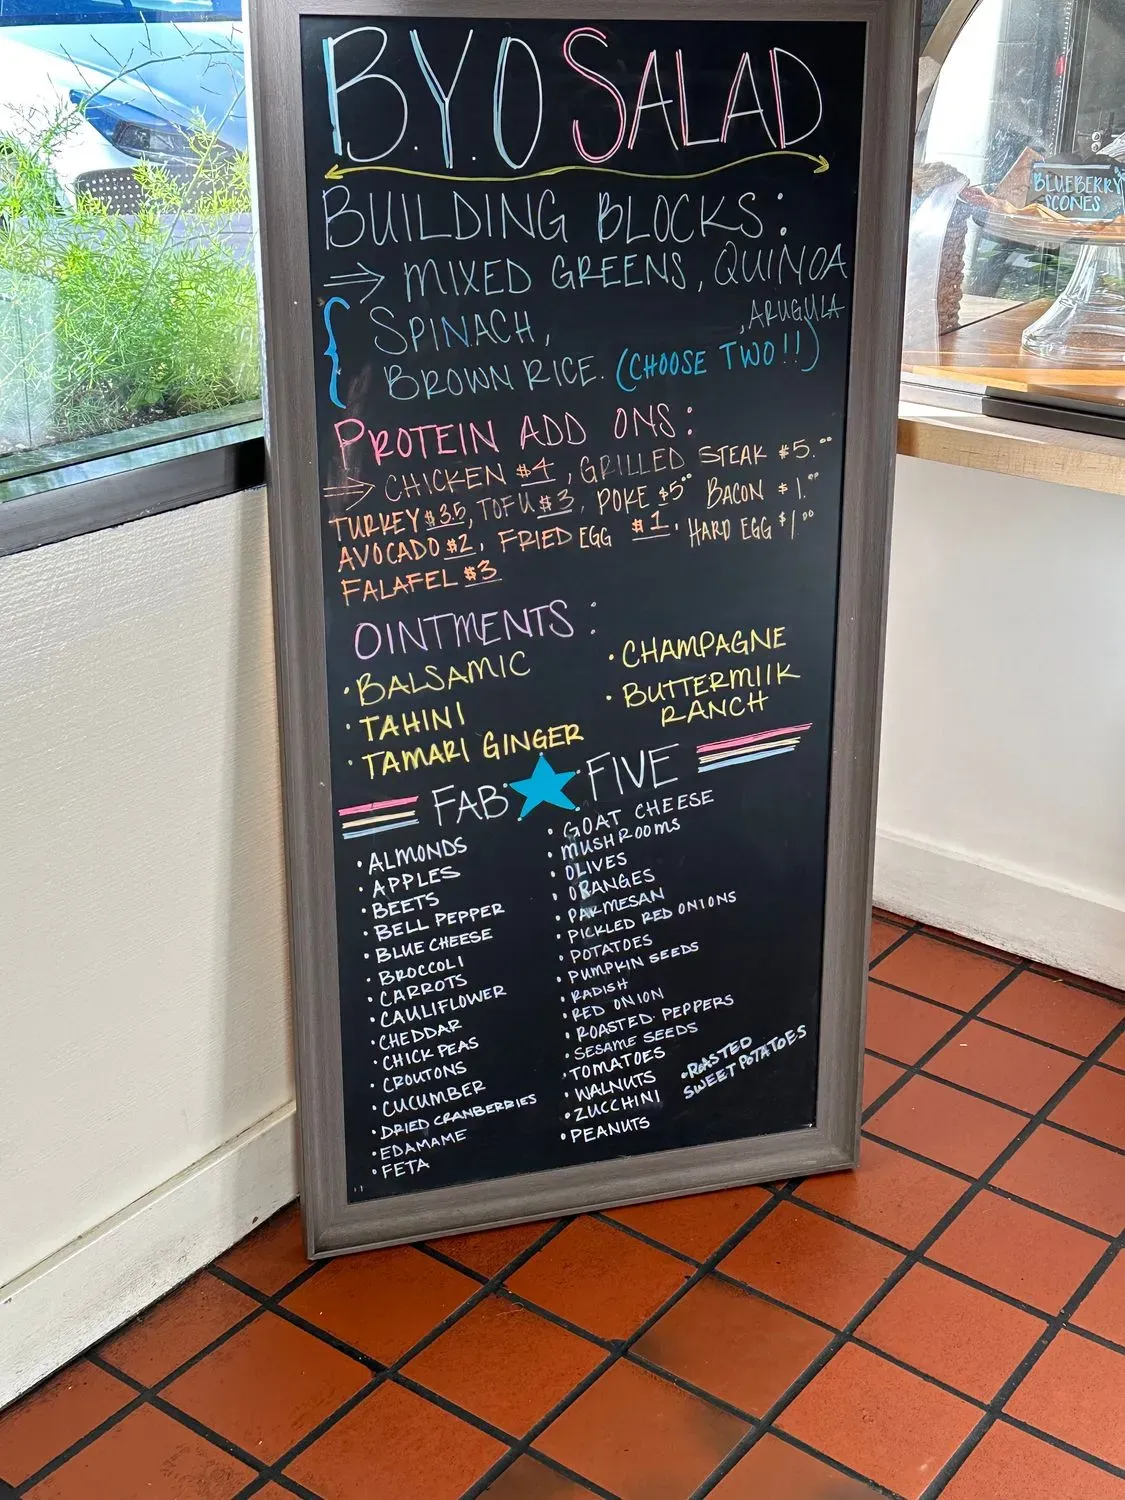 B.Y.O SALAD
BUILDING BLOCKS:
⇒ MIXED GREENS, QUINOA
SPINACH, , ARUGULA
BROWN RICE. (CHOOSE TWO!!)
PROTEIN ADD ONS:
⇒ CHICKEN $4, GRILLED STEAK $5.00
TURKEY $3.5, TOFU $3, POKE $5.00 BACON $1.00
AVOCADO $2, FRIED EGG $1, HARD EGG $1.00
FALAFEL $3
OINTMENTS:
• BALSAMIC
• TAHINI
• TAMARI GINGER
• CHAMPAGNE
• BUTTERMILK
RANCH
FAB ★ FIVE
• ALMONDS
• APPLES
• BEETS
• BELL PEPPER
• BLUE CHEESE
• BROCCOLI
• CARROTS
• CAULIFLOWER
• CHEDDAR
• CHICK PEAS
• CROUTONS
• CUCUMBER
• DRIED CRANBERRIES
• EDAMAME
• FETA
• GOAT CHEESE
• MUSHROOMS
• OLIVES
• ORANGES
• PARMESAN
• PICKLED RED ONIONS
• POTATOES
• PUMPKIN SEEDS
• RADISH
• RED ONION
• ROASTED PEPPERS
• SESAME SEEDS
• TOMATOES
• WALNUTS
• ZUCCHINI
• PEANUTS
• ROASTED
SWEET POTATOES
BLUEBERRY
SCONES